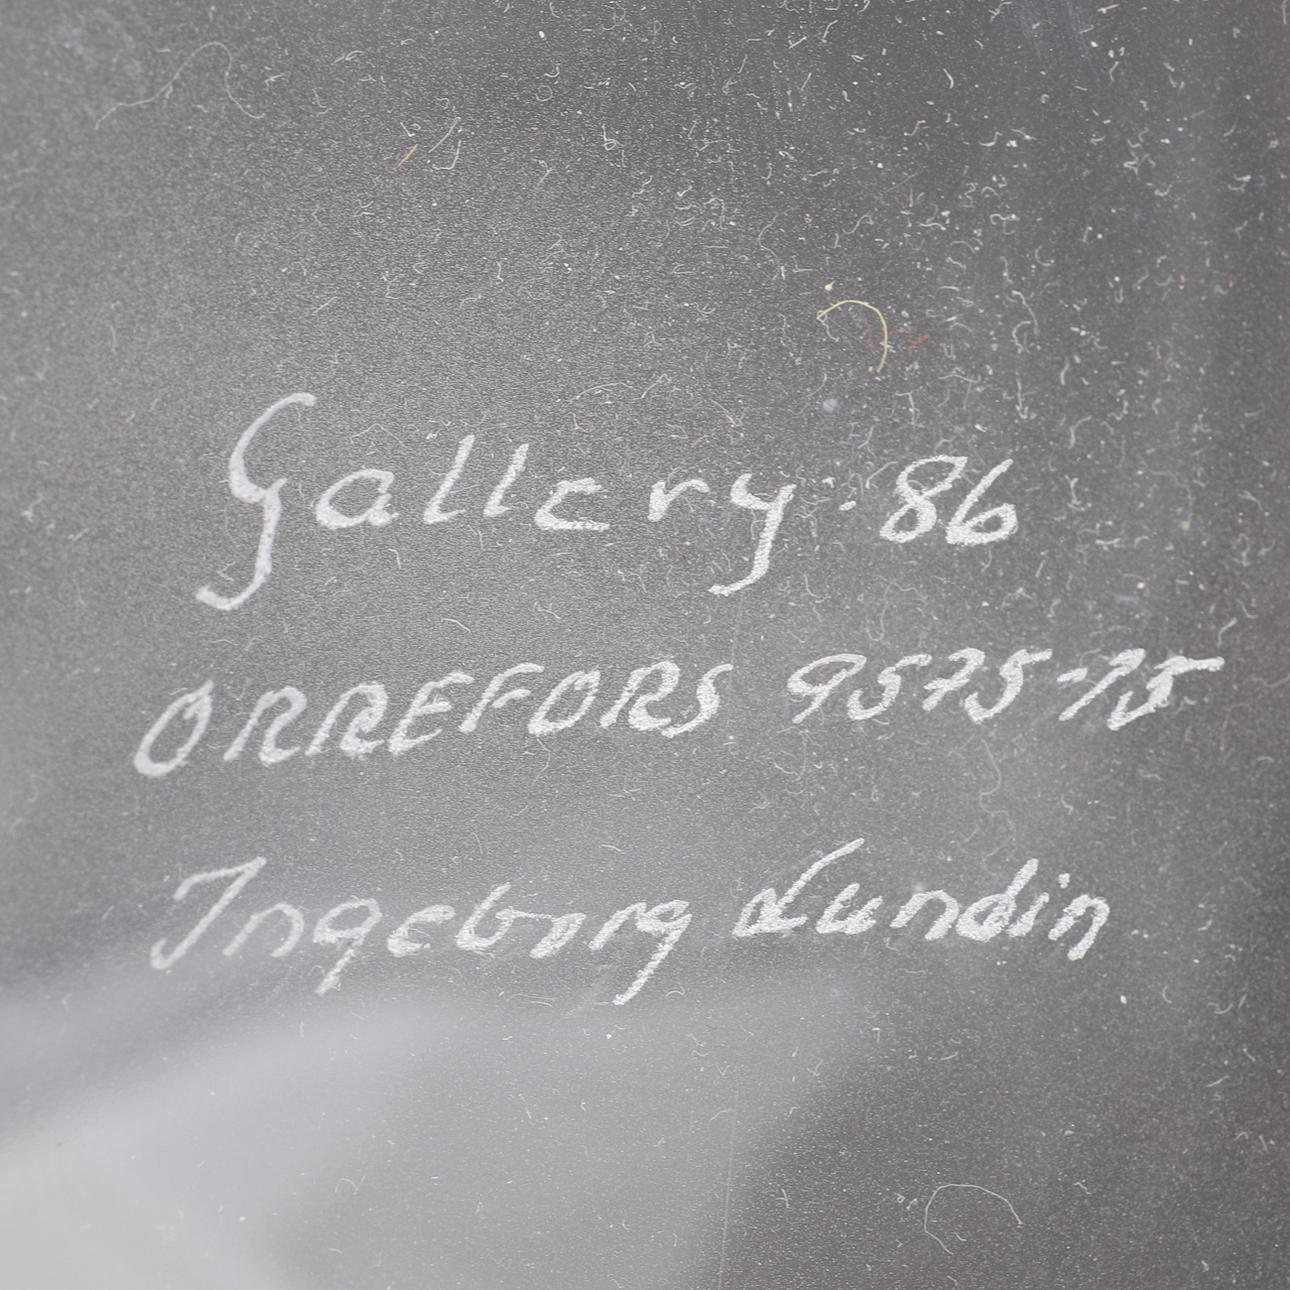 Gallery·86
ORREFORS 9575-75
Ingeborg Lundin